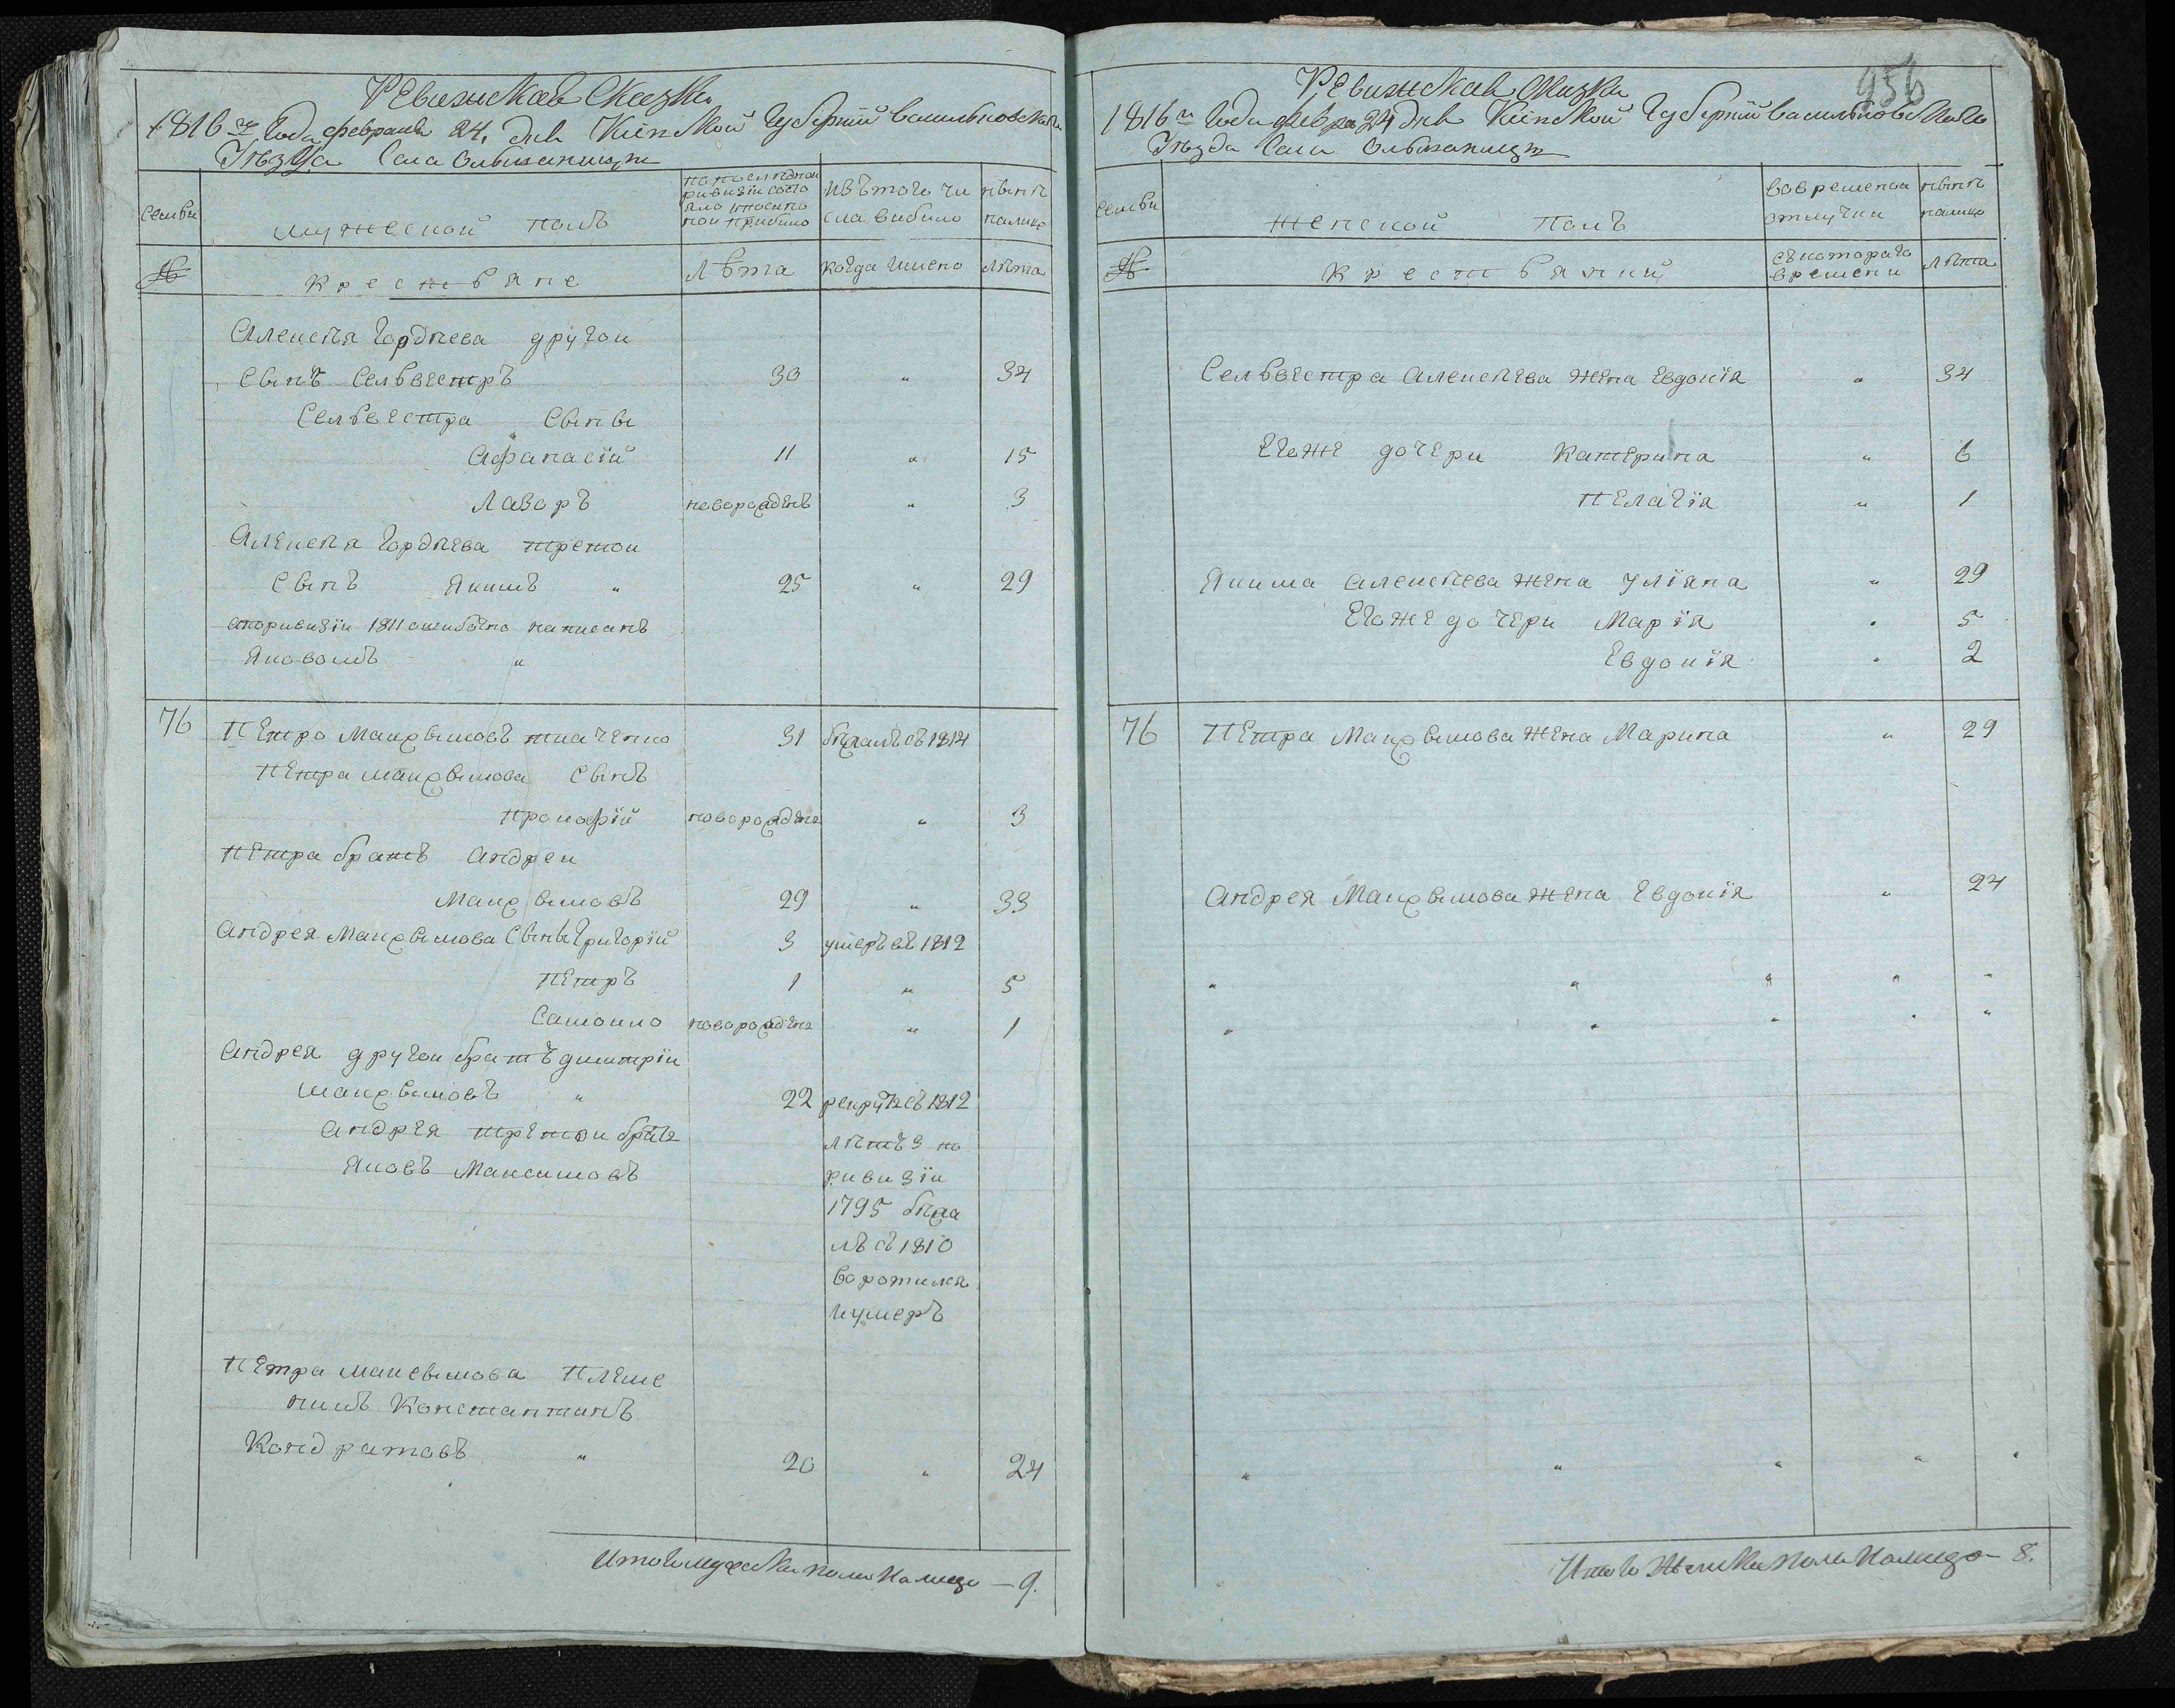 Ревижская Сказка
1816го Года февраля 24, дня Кіевской Губерніи васильковскаго
Уѣзда Села Ольшаницы
Семьи
мужеской полъ
по последной ривизіи состояло ипосипо пой прибило
изътого числа вибило
нынѣ налицо
№
крестьяне
Лѣта
когда имено
лѣта
Алексѣя Гордѣева другои
Сынъ Селвестръ 30 " 34
Селвестра Сыны
Афанасій 11 " 15
Лазоръ новорожденъ " 3
Алексѣя Гордѣева третои
Сынъ Якимъ " 25 " 29
впоривизіи 1811 ошибочно написанъ
Яковомъ "
76 Петро Макҳымовъ ткаченко 31 бѣжалъ въ 1814
Петра макҳымова Сынъ
Прокофій новорожденъ " 3
Петра братъ Андреи
Макҳымовъ 29 " 33
Андрея Макҳымова Сыны Григорій 3 умеръ въ 1812
Петръ 1 " 5
Самоило новорожденъ " 1
Андрея другои братъ димитріи
макҳымовъ " 22 рекрутъ въ 1812
Андрея третои братъ лѣтъ 9 по
Яковъ Максимовъ ривизіи
1795 бѣжа
лъ въ 1810
воротился
иумеръ
Петра максымова племе
никъ Константинъ
Кондратовъ " 20 " 24
Итого мужеска пола Налицо — 9.
956
Ревижская Сказка
1816го Года февра 24 дня Кіевской Губерніи васильковскаго
Уѣзда Села Ольшаницы
Семьи
женской полъ
вовременой отлучки
нынѣ налицо
№
крестьянки
съкотораго времени
лѣта
Селвестра алексѣева жена Евдокія " 34
Егоже дочери Катерина " 6
Пелагія " 1
Якима алексѣева жена Уліяна " 29
Егоже дочери Марія " 5
Евдокія " 2
76 Петра Макҳымова жена Марина " 29
Андрея Макҳымова жена Евдокія " 24
" " " " "
" " " " "
" " " " "
Итого женска пола Налицо — 8.